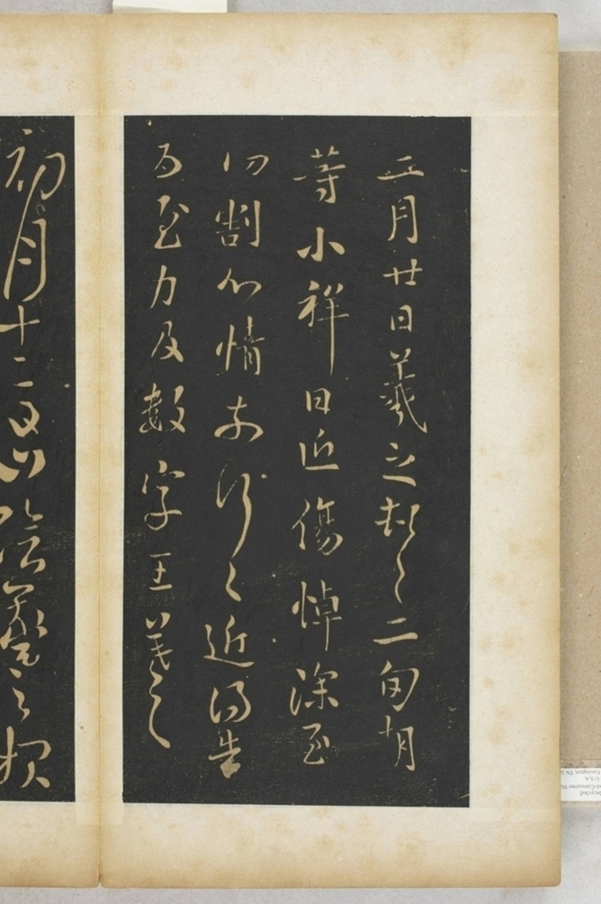 二月廿日羲之頓首二旬期
等小祥日近傷悼深至
切割心情奈何〻近得告
為 力及數字王羲之
初月十二日山陰羲之報